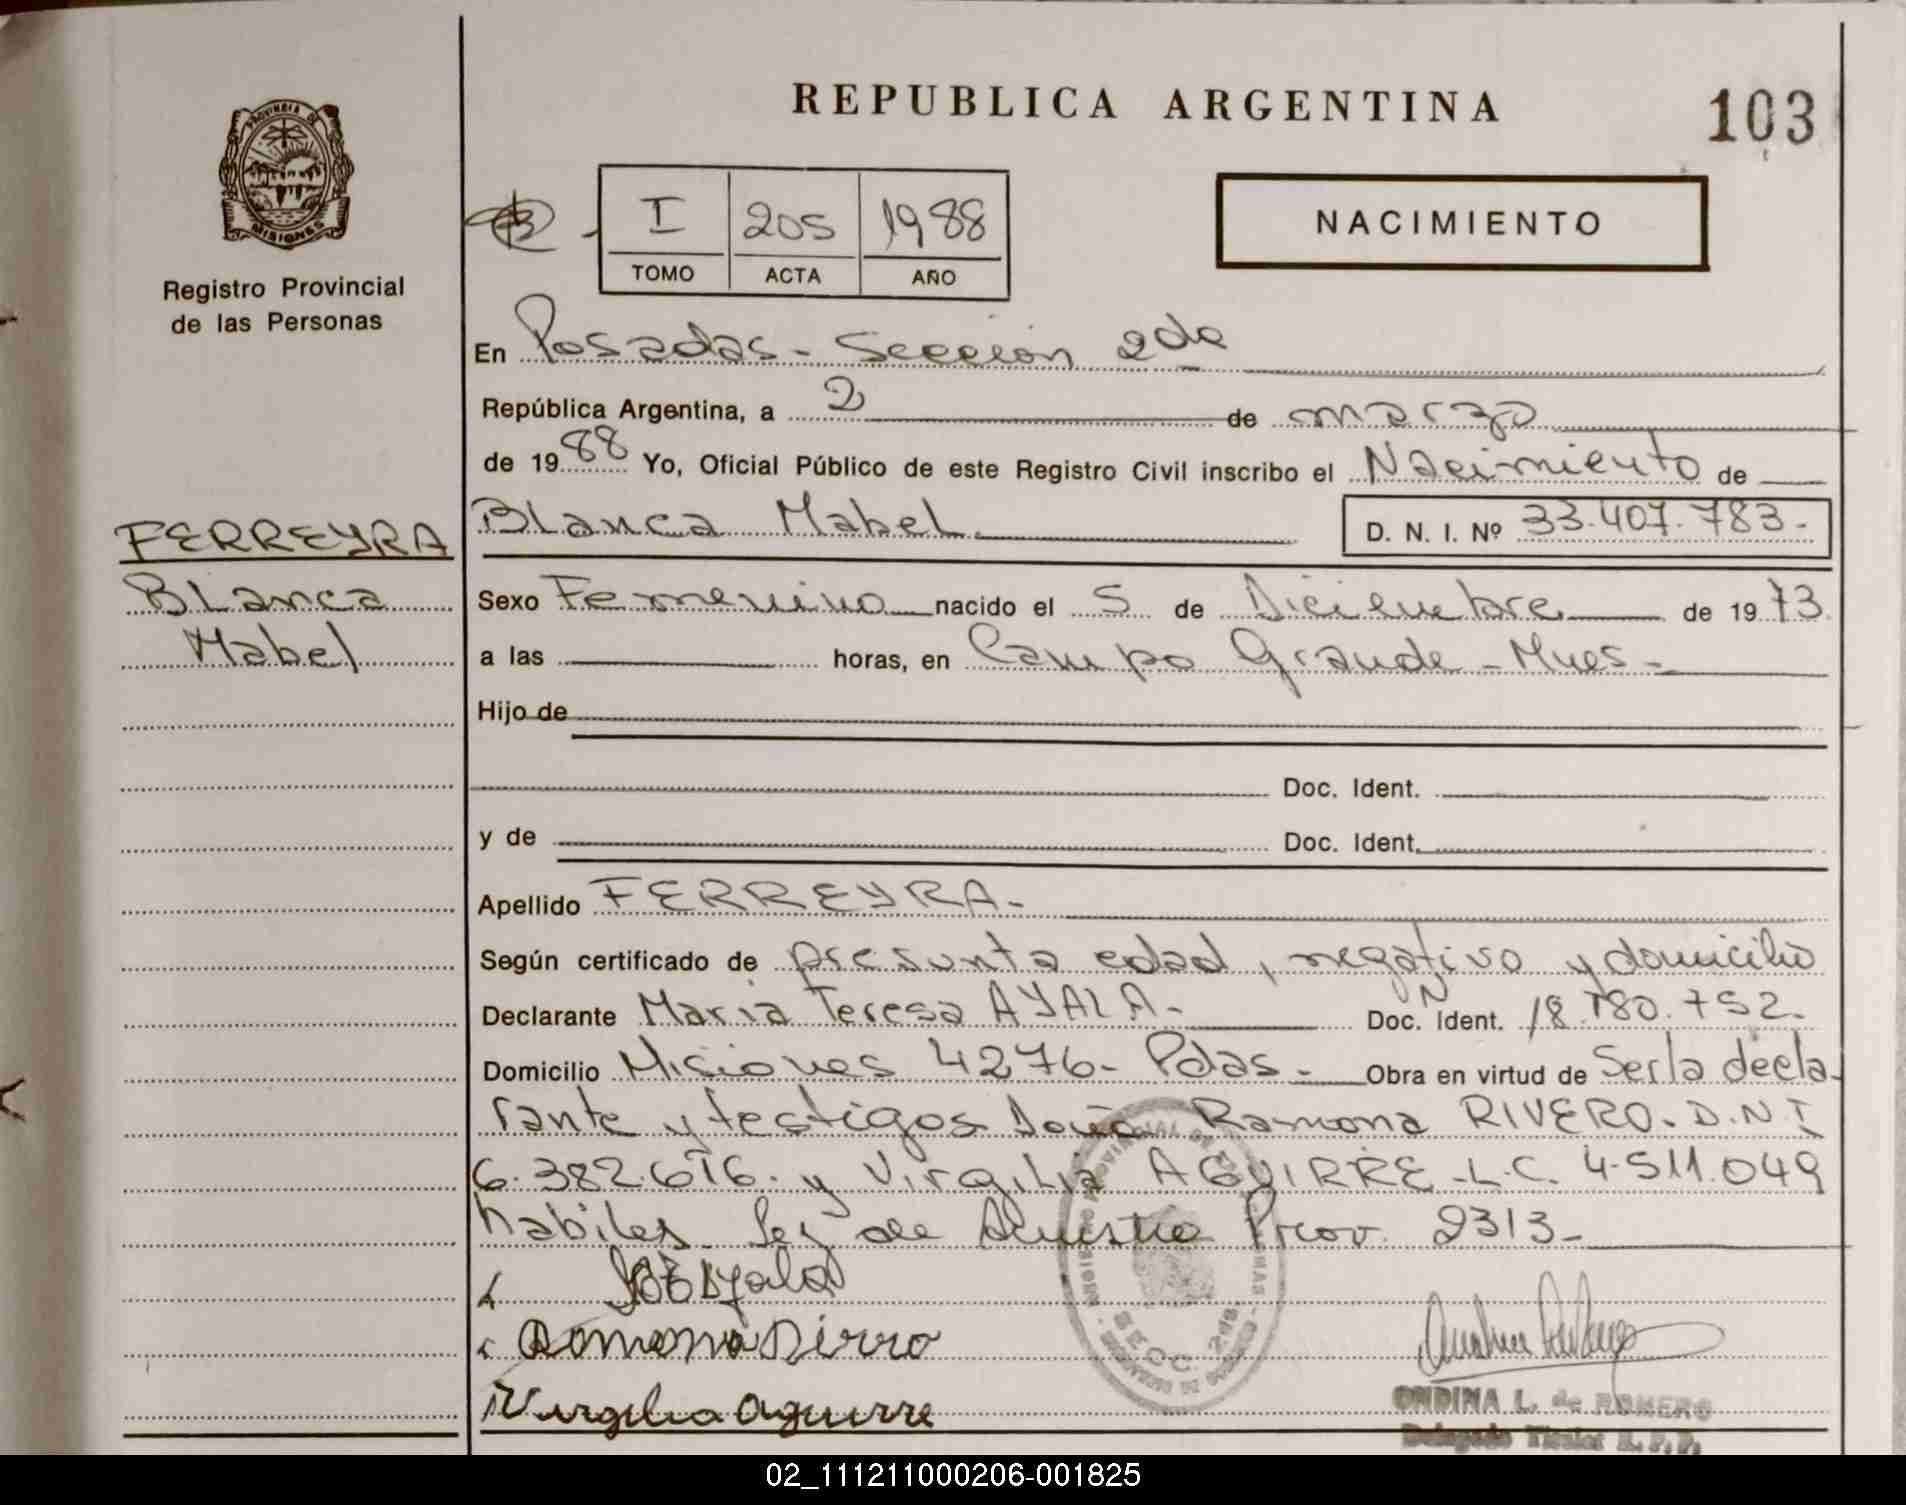 REPUBLICA ARGENTINA
103
PROVINCIA DE
MISIONES
Registro Provincial
de las Personas
I 205 1988
TOMO ACTA AÑO
NACIMIENTO
En Posadas - Sección 2da
República Argentina, a 2 de marzo
de 1988 Yo, Oficial Público de este Registro Civil inscribo el Nacimiento de
Blanca Mabel D. N. I. Nº 33.407.783.-
FERREYRA
Blanca
Mabel
Sexo Femenino nacido el 5 de Diciembre de 1973
a las horas, en Campo Grande - Mnes -
Hijo de
Doc. Ident.
y de Doc. Ident.
Apellido FERREYRA.-
Según certificado de presunta edad, negativo y domicilio
Declarante Maria Teresa AYALA.- Doc. Ident. 18.780.752.-
Domicilio Misiones 4276- Pdas.- Obra en virtud de Ser la decla-
rante y testigos Doña Ramona RIVERO. D.N.I
6.382.616. y Virgilia AGUIRRE -L.C. 4.511.049
habiles Ley de Prov. 2313-
Virgilia Aguirre
SECC. 2da
ONDINA L. de ROMERO
Delegado Titular R. P. P.
02_111211000206-001825